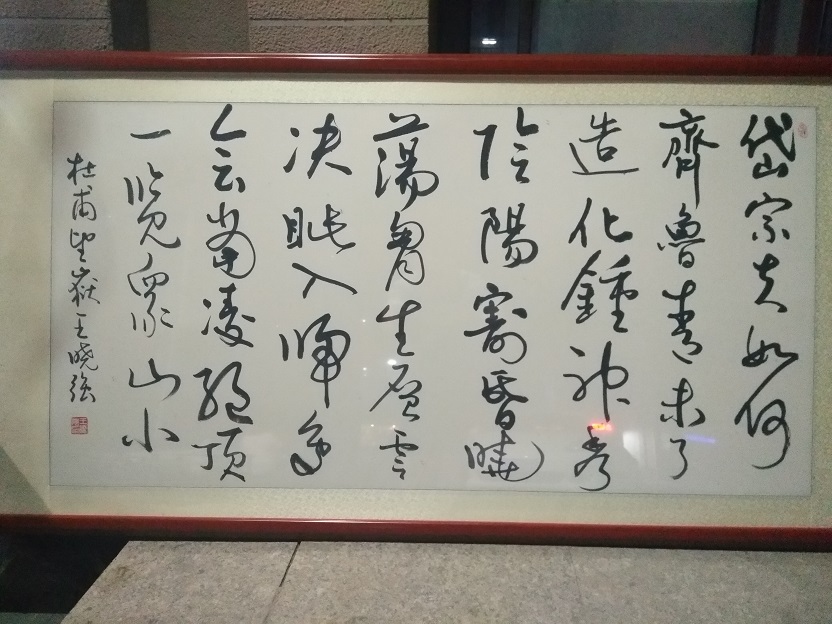 岱宗夫如何
齊魯青未了
造化鍾神秀
陰陽割昏曉
蕩胸生層雲
决眦入歸鳥
會當凌絕頂
一覽眾山小
杜甫望嶽王曉强